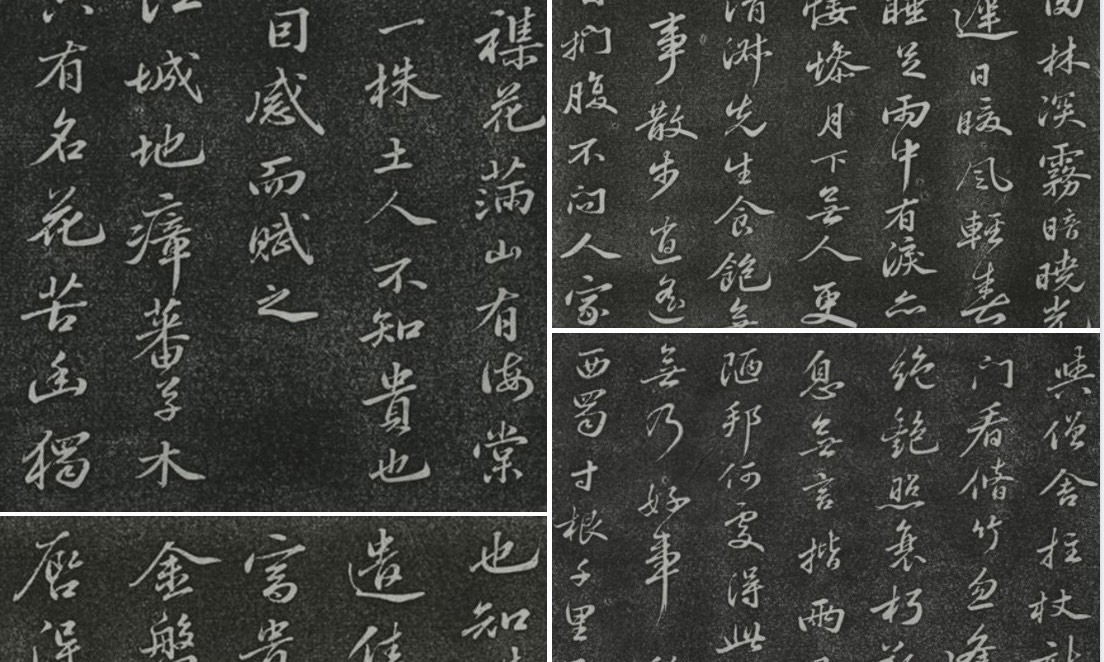 襍花滿山有海棠
一株土人不知貴也
因感而賦之
江城地瘴蕃草木
只有名花苦幽獨
也知
遣佳
富貴
金盤
脣得
林深霧暗曉光
遲日暖風輕春
睡足雨中有淚亦
悽慘月下無人更
清淑先生食飽無
事散步逍遙
捫腹不問人家
與僧舍拄杖
門看脩竹忽逢
絕艷照衰朽
息無言揩兩
陋邦何處得此
無乃好事
西蜀寸根千里